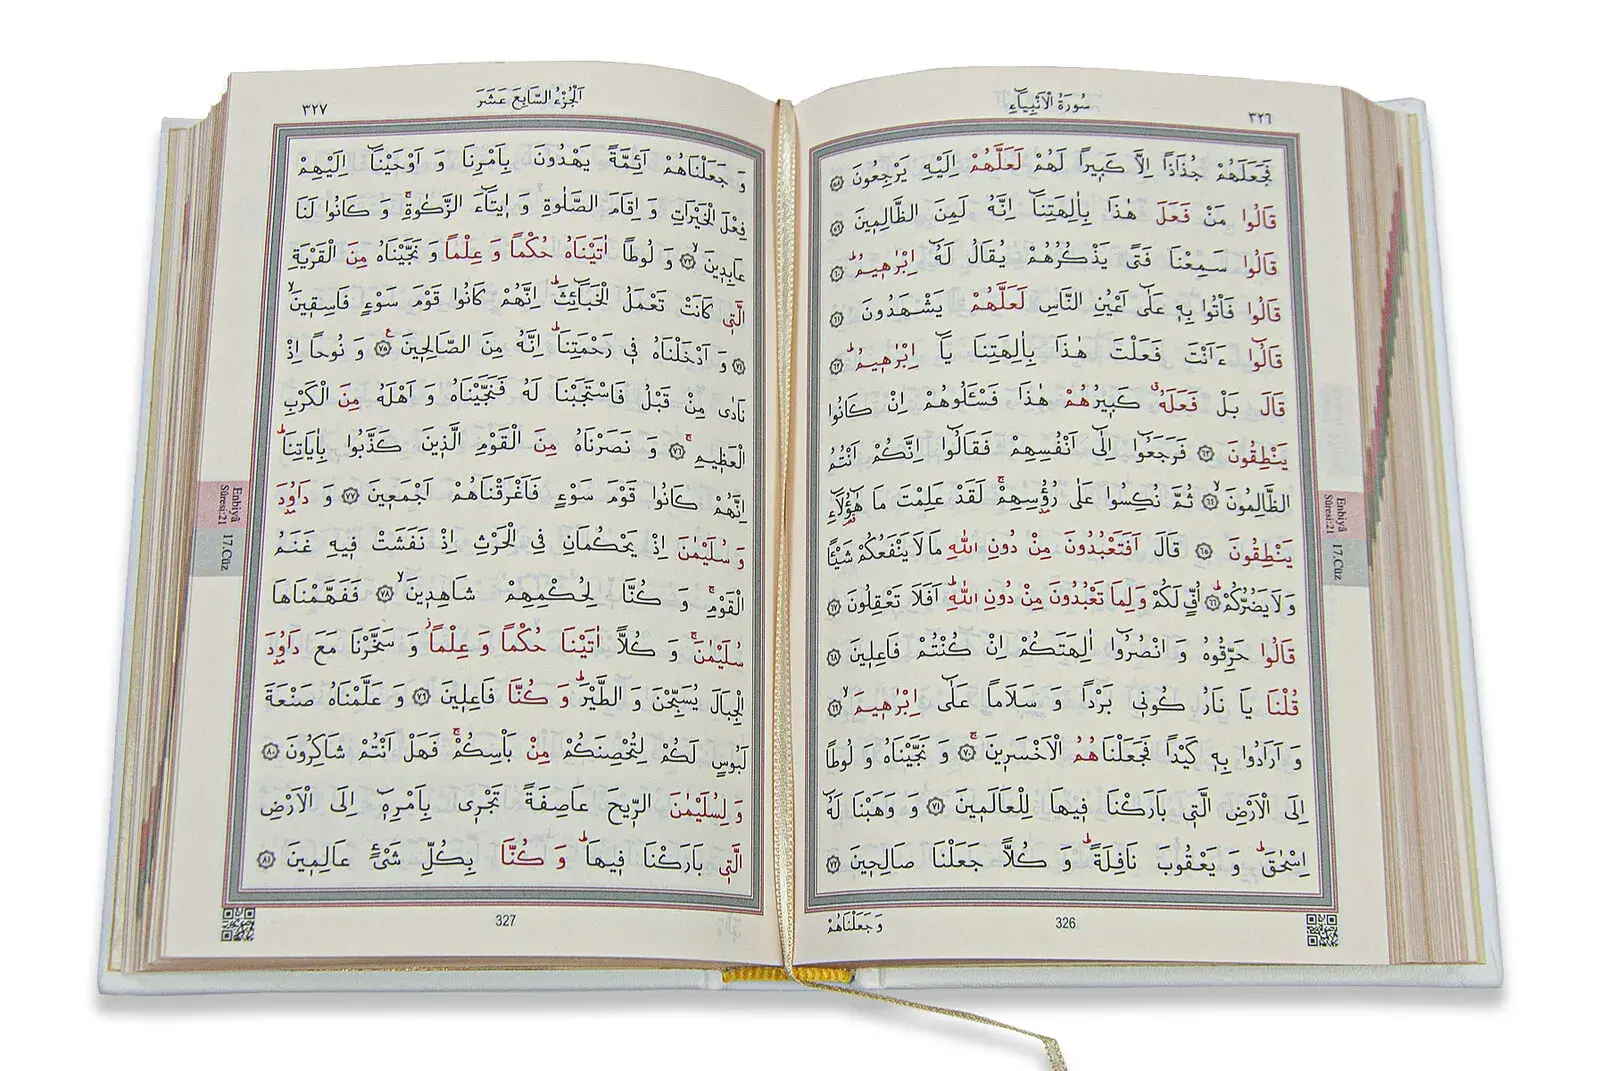 سُورَةُ الْاَنْبِيَاءِ
٣٢٦
فَجَعَلَهُمْ جُذَاذًا اِلَّا كَبٖيرًا لَهُمْ لَعَلَّهُمْ اِلَيْهِ يَرْجِعُونَ ٥٨
قَالُوا مَنْ فَعَلَ هٰذَا بِاٰلِهَتِنَا اِنَّهُ لَمِنَ الظَّالِمٖينَ ٥٩
قَالُوا سَمِعْنَا فَتًى يَذْكُرُهُمْ يُقَالُ لَهُ اِبْرٰهٖيمُ ٦٠
قَالُوا فَاْتُوا بِهٖ عَلٰى اَعْيُنِ النَّاسِ لَعَلَّهُمْ يَشْهَدُونَ ٦١
قَالُوا ءَاَنْتَ فَعَلْتَ هٰذَا بِاٰلِهَتِنَا يَا اِبْرٰهٖيمُ ٦٢
قَالَ بَلْ فَعَلَهُ كَبٖيرُهُمْ هٰذَا فَسْپَلُوهُمْ اِنْ كَانُوا
يَنْطِقُونَ ٦٣ فَرَجَعُوا اِلٰى اَنْفُسِهِمْ فَقَالُوا اِنَّكُمْ اَنْتُمُ
الظَّالِمُونَ ٦٤ ثُمَّ نُكِسُوا عَلٰى رُؤُسِهِمْ لَقَدْ عَلِمْتَ مَا هٰؤُلَاءِ
يَنْطِقُونَ ٦٥ قَالَ اَفَتَعْبُدُونَ مِنْ دُونِ اللّٰهِ مَا لَا يَنْفَعُكُمْ شَيْئًا
وَلَا يَضُرُّكُمْ ٦٦ اُفٍّ لَكُمْ وَلِمَا تَعْبُدُونَ مِنْ دُونِ اللّٰهِ اَفَلَا تَعْقِلُونَ ٦٧
قَالُوا حَرِّقُوهُ وَ انْصُرُوا اٰلِهَتَكُمْ اِنْ كُنْتُمْ فَاعِلٖينَ ٦٨
قُلْنَا يَا نَارُ كُونٖي بَرْدًا وَ سَلَامًا عَلٰى اِبْرٰهٖيمَ ٦٩
وَ اَرَادُوا بِهٖ كَيْدًا فَجَعَلْنَاهُمُ الْاَخْسَرٖينَ ٧٠ وَ نَجَّيْنَاهُ وَ لُوطًا
اِلَى الْاَرْضِ الَّتٖي بَارَكْنَا فٖيهَا لِلْعَالَمٖينَ ٧١ وَ وَهَبْنَا لَهُ
اِسْحٰقَ وَ يَعْقُوبَ نَافِلَةً وَ كُلًّا جَعَلْنَا صَالِحٖينَ ٧٢
وَ جَعَلْنَاهُمْ
326
Enbiyâ
Sûresi:21
17.Cüz
اَلْجُزْءُ السَّابِعَ عَشَرَ
٣٢٧
وَ جَعَلْنَاهُمْ اَئِمَّةً يَهْدُونَ بِاَمْرِنَا وَ اَوْحَيْنَا اِلَيْهِمْ
فِعْلَ الْخَيْرَاتِ وَ اِقَامَ الصَّلٰوةِ وَ اٖيتَاءَ الزَّكٰوةِ وَ كَانُوا لَنَا
عَابِدٖينَ ٧٣ وَ لُوطًا اٰتَيْنَاهُ حُكْمًا وَ عِلْمًا وَ نَجَّيْنَاهُ مِنَ الْقَرْيَةِ
الَّتٖي كَانَتْ تَعْمَلُ الْخَبَائِثَ اِنَّهُمْ كَانُوا قَوْمَ سَوْءٍ فَاسِقٖينَ
٧٤ وَ اَدْخَلْنَاهُ فٖي رَحْمَتِنَا اِنَّهُ مِنَ الصَّالِحٖينَ ٧٥ وَ نُوحًا اِذْ
نَادٰى مِنْ قَبْلُ فَاسْتَجَبْنَا لَهُ فَنَجَّيْنَاهُ وَ اَهْلَهُ مِنَ الْكَرْبِ
الْعَظٖيمِ ٧٦ وَ نَصَرْنَاهُ مِنَ الْقَوْمِ الَّذٖينَ كَذَّبُوا بِاٰيَاتِنَا
اِنَّهُمْ كَانُوا قَوْمَ سَوْءٍ فَاَغْرَقْنَاهُمْ اَجْمَعٖينَ ٧٧ وَ دَاوُدَ
وَ سُلَيْمٰنَ اِذْ يَحْكُمَانِ فِي الْحَرْثِ اِذْ نَفَشَتْ فٖيهِ غَنَمُ
الْقَوْمِ وَ كُنَّا لِحُكْمِهِمْ شَاهِدٖينَ ٧٨ فَفَهَّمْنَاهَا
سُلَيْمٰنَ وَ كُلًّا اٰتَيْنَا حُكْمًا وَ عِلْمًا وَ سَخَّرْنَا مَعَ دَاوُدَ
الْجِبَالَ يُسَبِّحْنَ وَ الطَّيْرَ وَ كُنَّا فَاعِلٖينَ ٧٩ وَ عَلَّمْنَاهُ صَنْعَةَ
لَبُوسٍ لَكُمْ لِتُحْصِنَكُمْ مِنْ بَاْسِكُمْ فَهَلْ اَنْتُمْ شَاكِرُونَ ٨٠
وَ لِسُلَيْمٰنَ الرّٖيحَ عَاصِفَةً تَجْرٖي بِاَمْرِهٖ اِلَى الْاَرْضِ
الَّتٖي بَارَكْنَا فٖيهَا وَ كُنَّا بِكُلِّ شَيْءٍ عَالِمٖينَ ٨١
327
Enbiyâ
Sûresi:21
17.Cüz